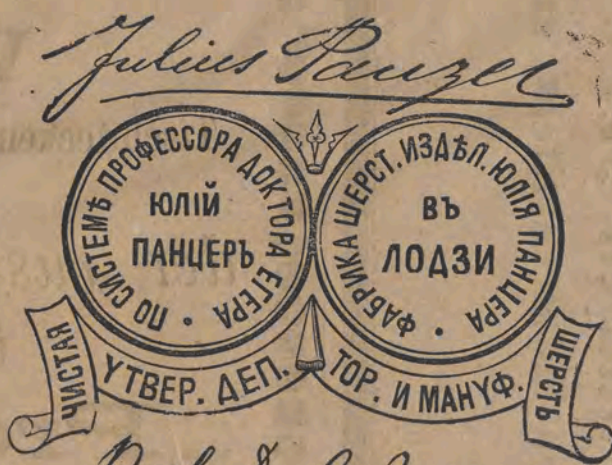 Julius Panzer
ПО СИСТЕМѢ ПРОФЕССОРА ДОКТОРА ЕГЕРА •
ЮЛІЙ
ПАНЦЕРЪ
ФАБРИКА ШЕРСТ. ИЗДѢЛ. ЮЛІЯ ПАНЦЕРА •
ВЪ
ЛОДЗИ
ЧИСТАЯ
УТВЕР. ДЕП.
ТОР. И МАНУФ.
ШЕРСТЬ